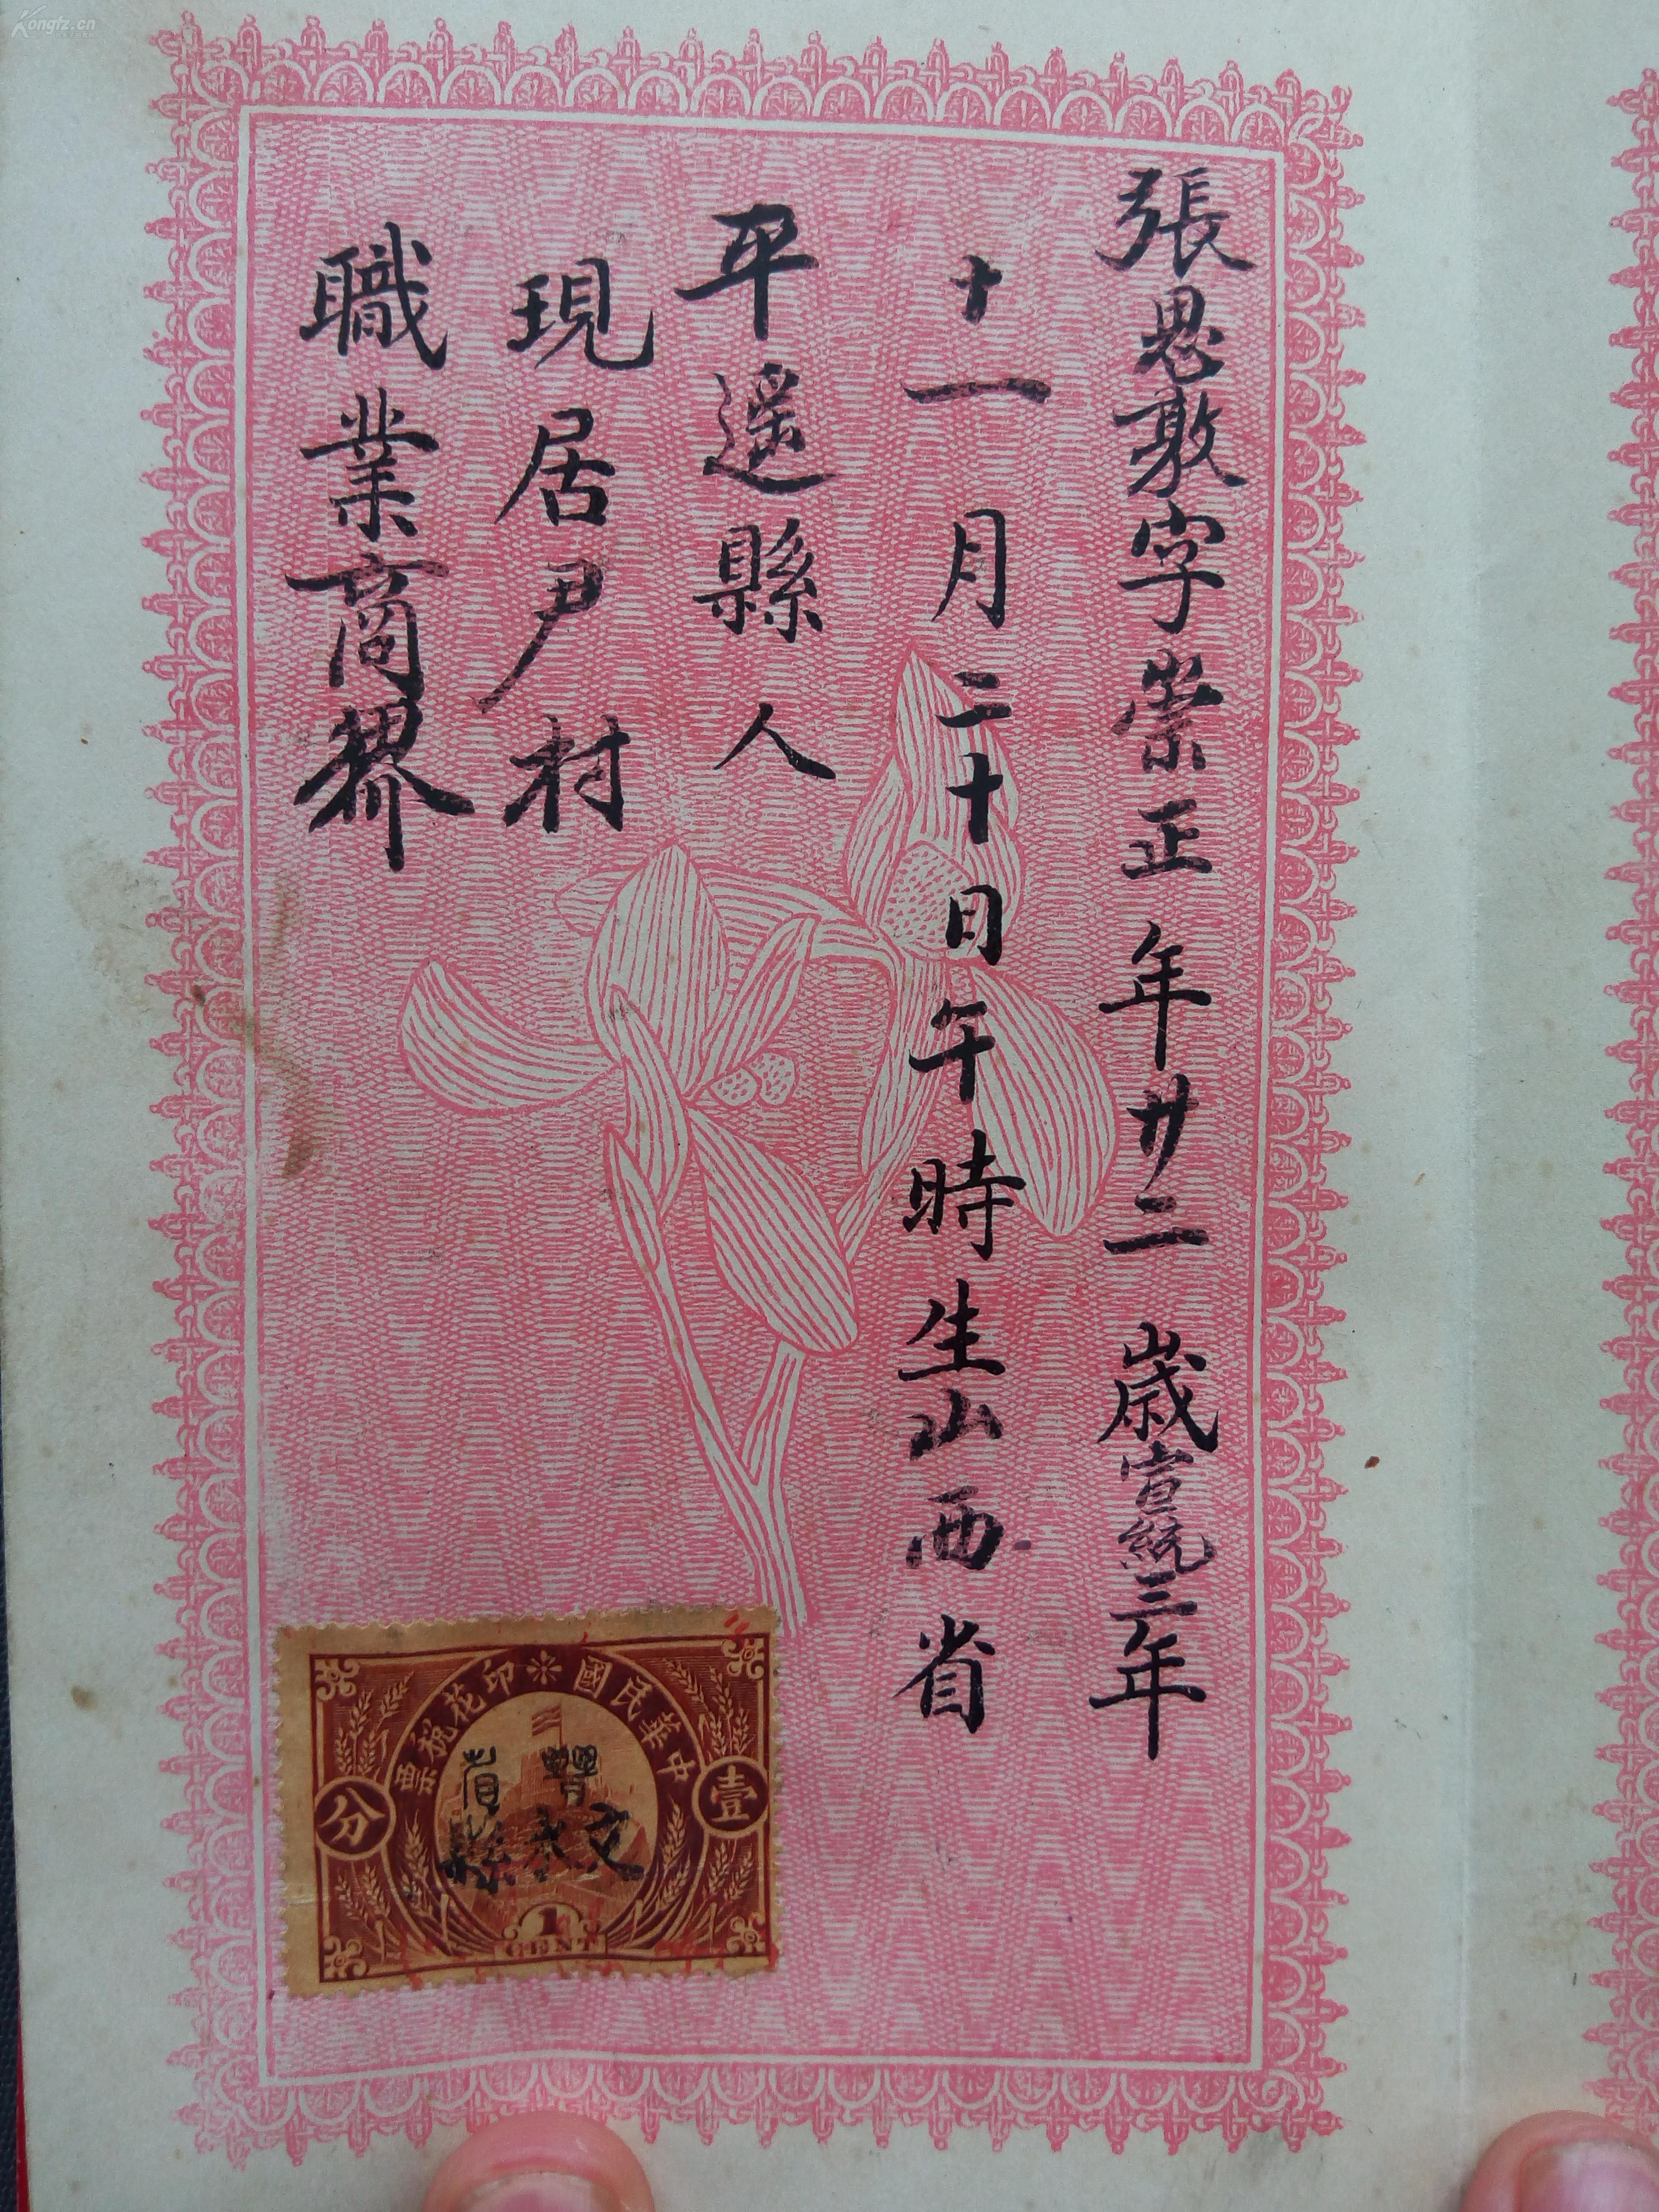 張思敦字崇正年廿二歲宣統三年
十一月二十日午時生山西省
平遥縣人
現居尹村
職業商界
中華民國印花稅票
壹
分
晉
省
文水縣
1
CENT
Kongfz.cn